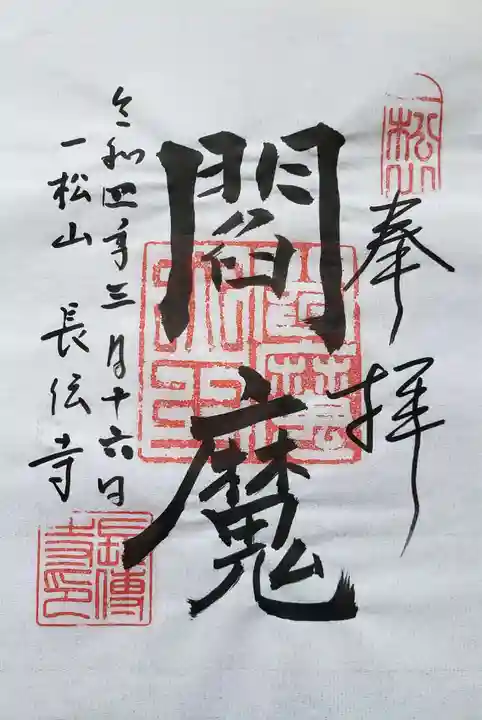 奉拝
閻魔
令和四年三月十六日
一松山 長伝寺
一松山
閻魔大王
長傳寺印